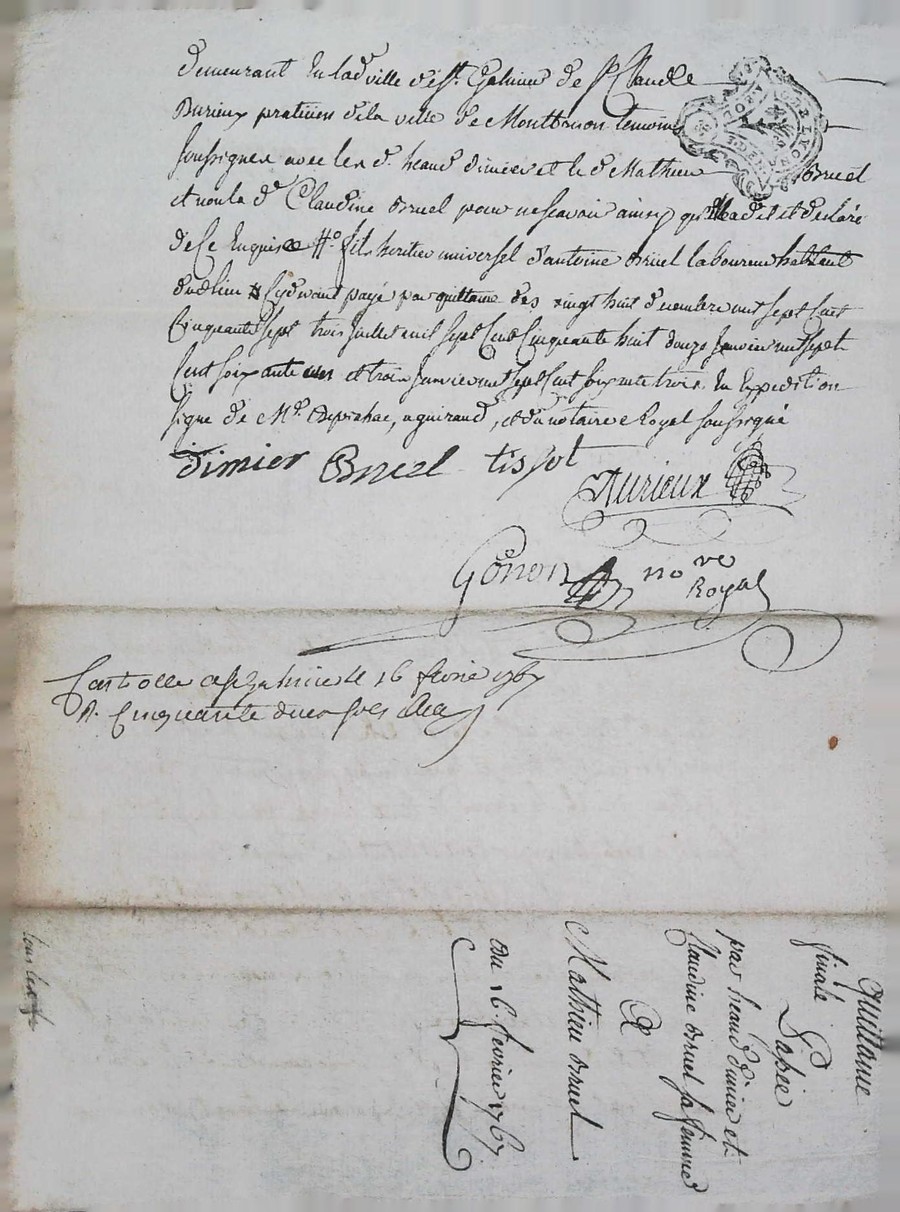 demeurant en lad ville de St Galmier de Sr Claude
Durieux praticien de la ville de Montbrison temoins
soussignes avec les d. heaud dimier et le d Mathieu Bruel
et non la d Claudine Bruel pour ne scavoir ainsy qu'elle a dit et declaré
de ce enquise fils heritier universel d'antoine Bruel laboureur
dud lieu cydevant payé par quittance des vingt huit decembre mil sept cent
cinquante sept trois juillet mil sept cent cinquante huit douze janvier mil sept
cent soixante un et trois janvier mil sept cent soixante trois en Expedition
signe de Me aguiraud, et du notaire Royal soussigné
dimier Bruel tissot
Durieux
Gonon no re
Royal
Contolle a St Galmier le 16 fevrie 1767
R. Cinquante deux
Quittance
finale
passée
par heaud dimier et
Claudine Bruel sa femme
A
Mathieu Bruel
du 16. fevrier 1767